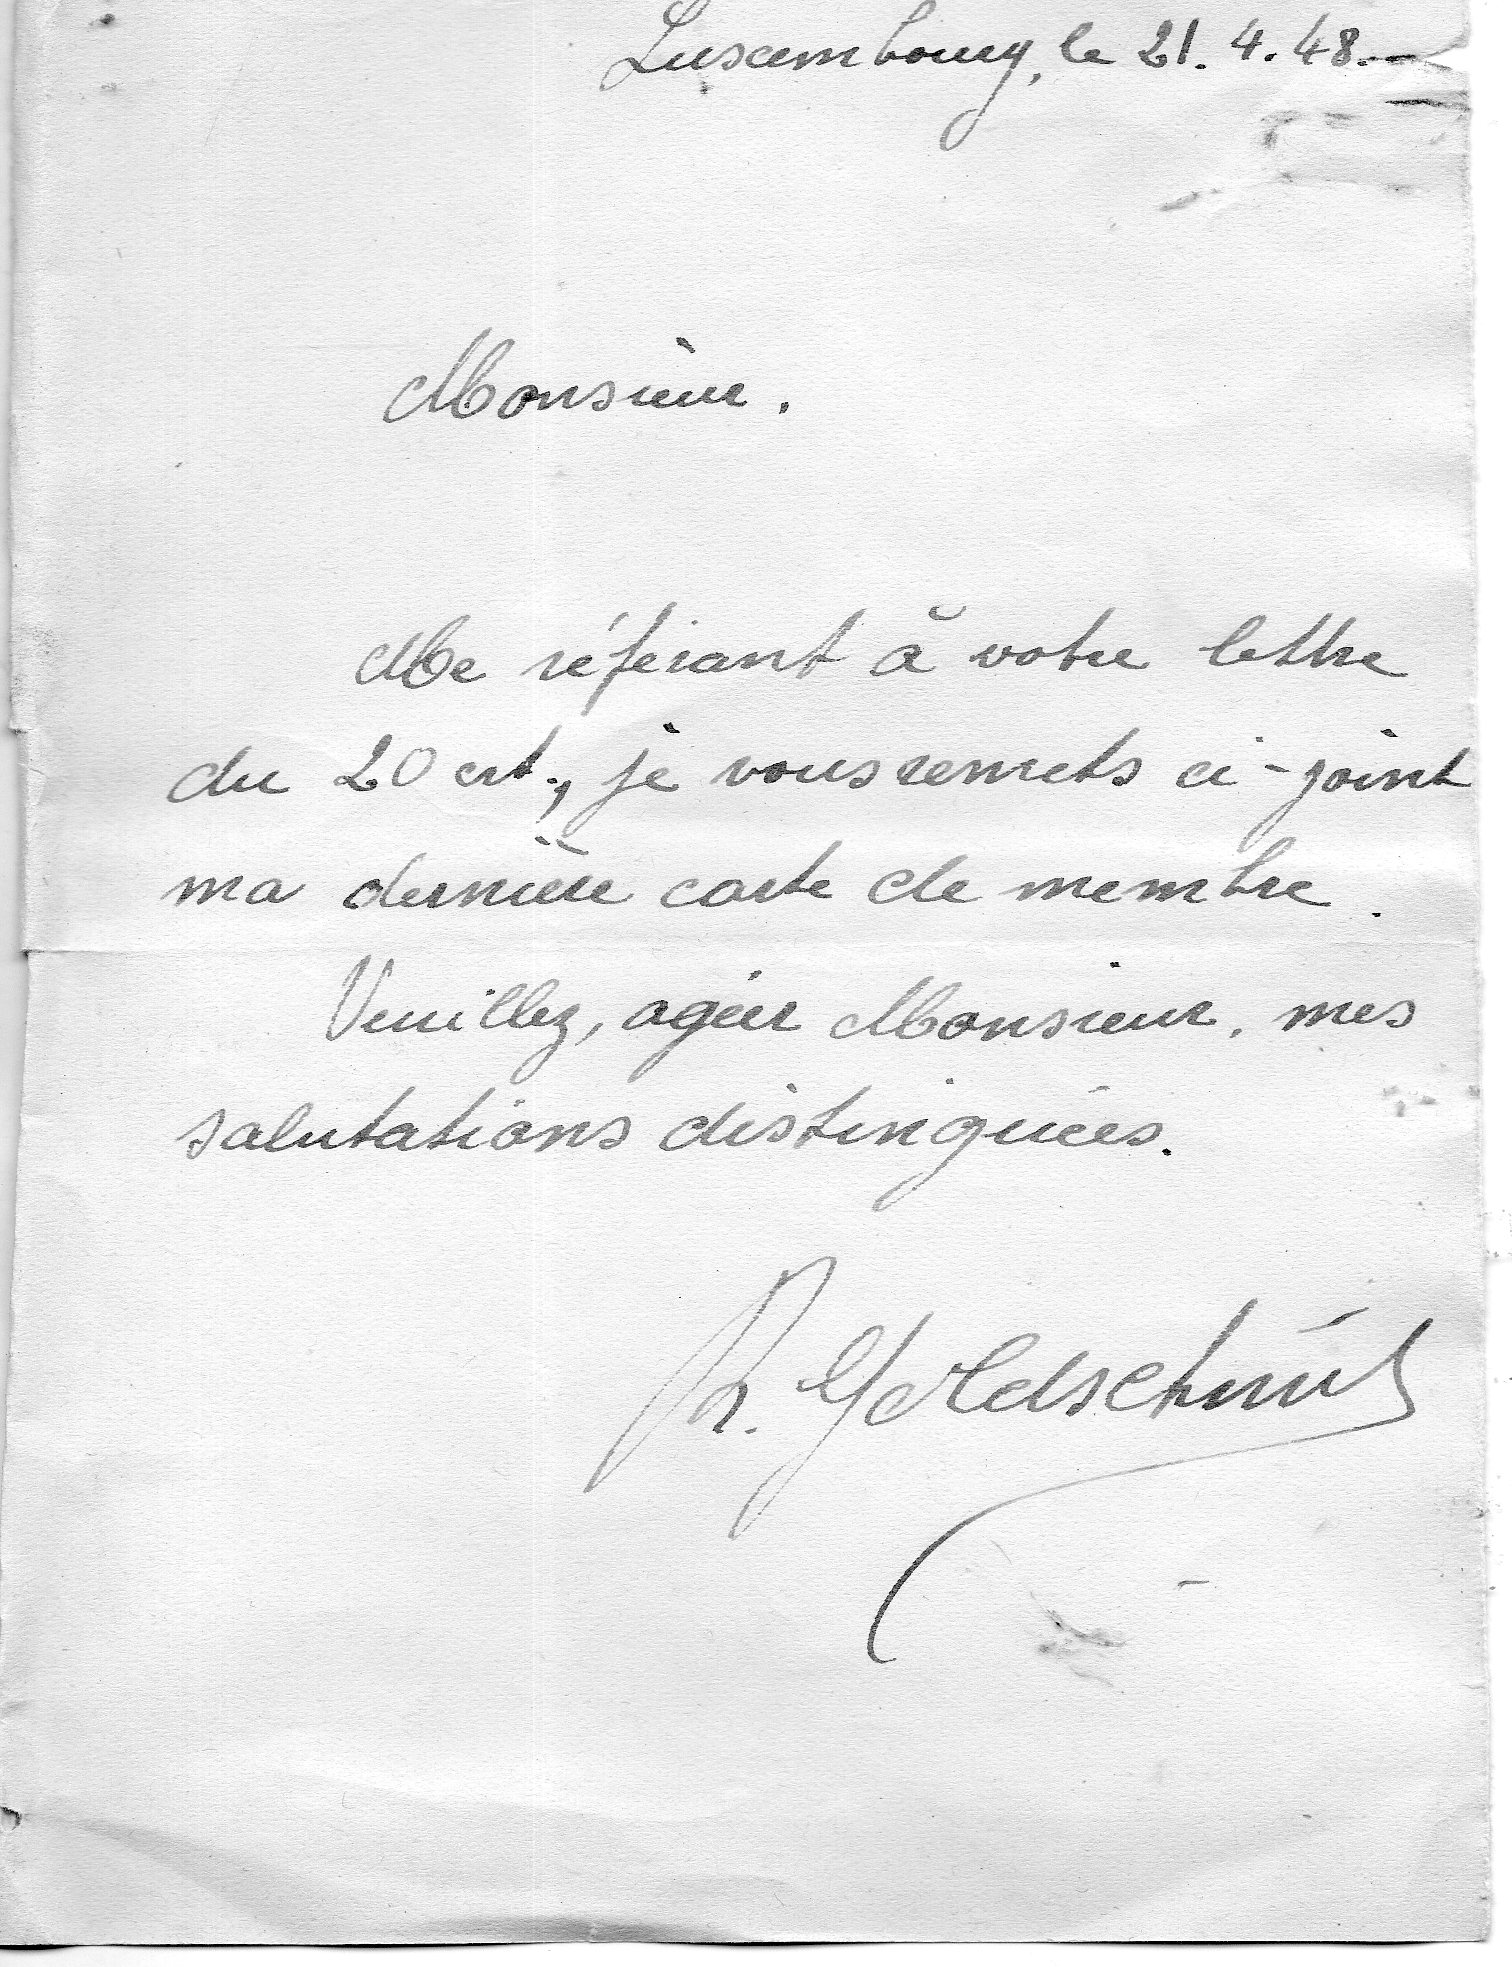 Luxembourg, le 21. 4. 48.-
Monsieur.
Me référant à votre lettre
du 20 crt., je vous remets ci-joint
ma dernière carte de membre.
Veuillez, agéer Monsieur, mes
salutations distinguées.
R. Goldschmit